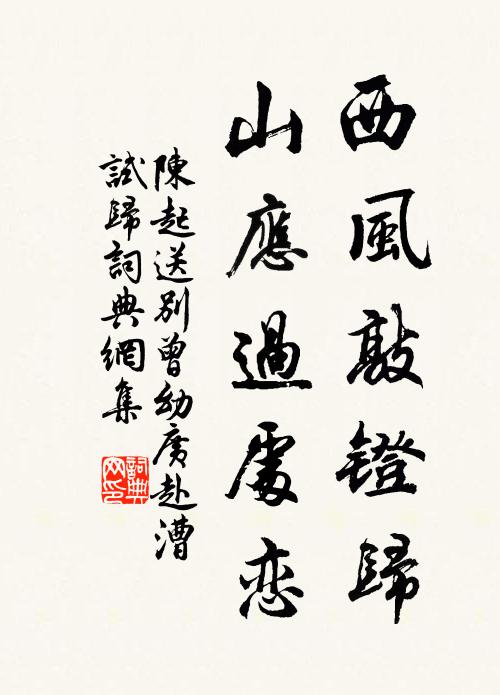 西風敲鐙歸
山應過處恋
陳起送別曾幼廣赴漕
試歸詞典網集
詞典
网印